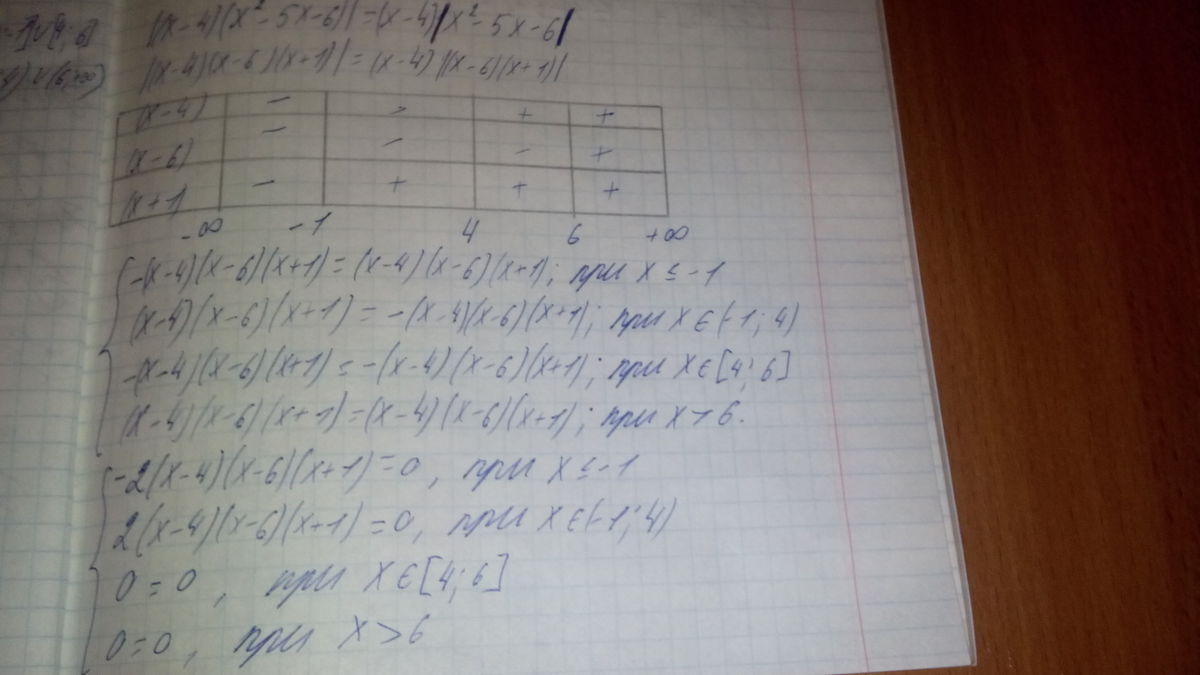 -1]∪[4; 6]
∪(6;+∞)
|(x-4)(x²-5x-6)|=(x-4)|x²-5x-6|
|(x-4)(x-6)(x+1)|=(x-4)|(x-6)(x+1)|
(x-4) - - + +
(x-6) - - - +
(x+1) - + + +
-∞ -1 4 6 +∞
-(x-4)(x-6)(x+1)=(x-4)(x-6)(x+1); при x≤-1
(x-4)(x-6)(x+1)=-(x-4)(x-6)(x+1); при x∈(-1;4)
-(x-4)(x-6)(x+1)=-(x-4)(x-6)(x+1); при x∈[4;6]
(x-4)(x-6)(x+1)=(x-4)(x-6)(x+1); при x>6.
-2(x-4)(x-6)(x+1)=0, при x≤-1
2(x-4)(x-6)(x+1)=0, при x∈(-1;4)
0=0, при x∈[4;6]
0=0, при x>6